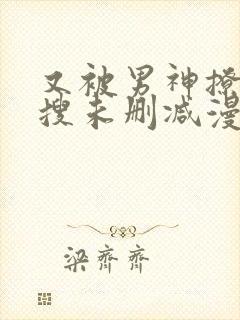 又被男神撩
搜未删减漫
梁齐齐